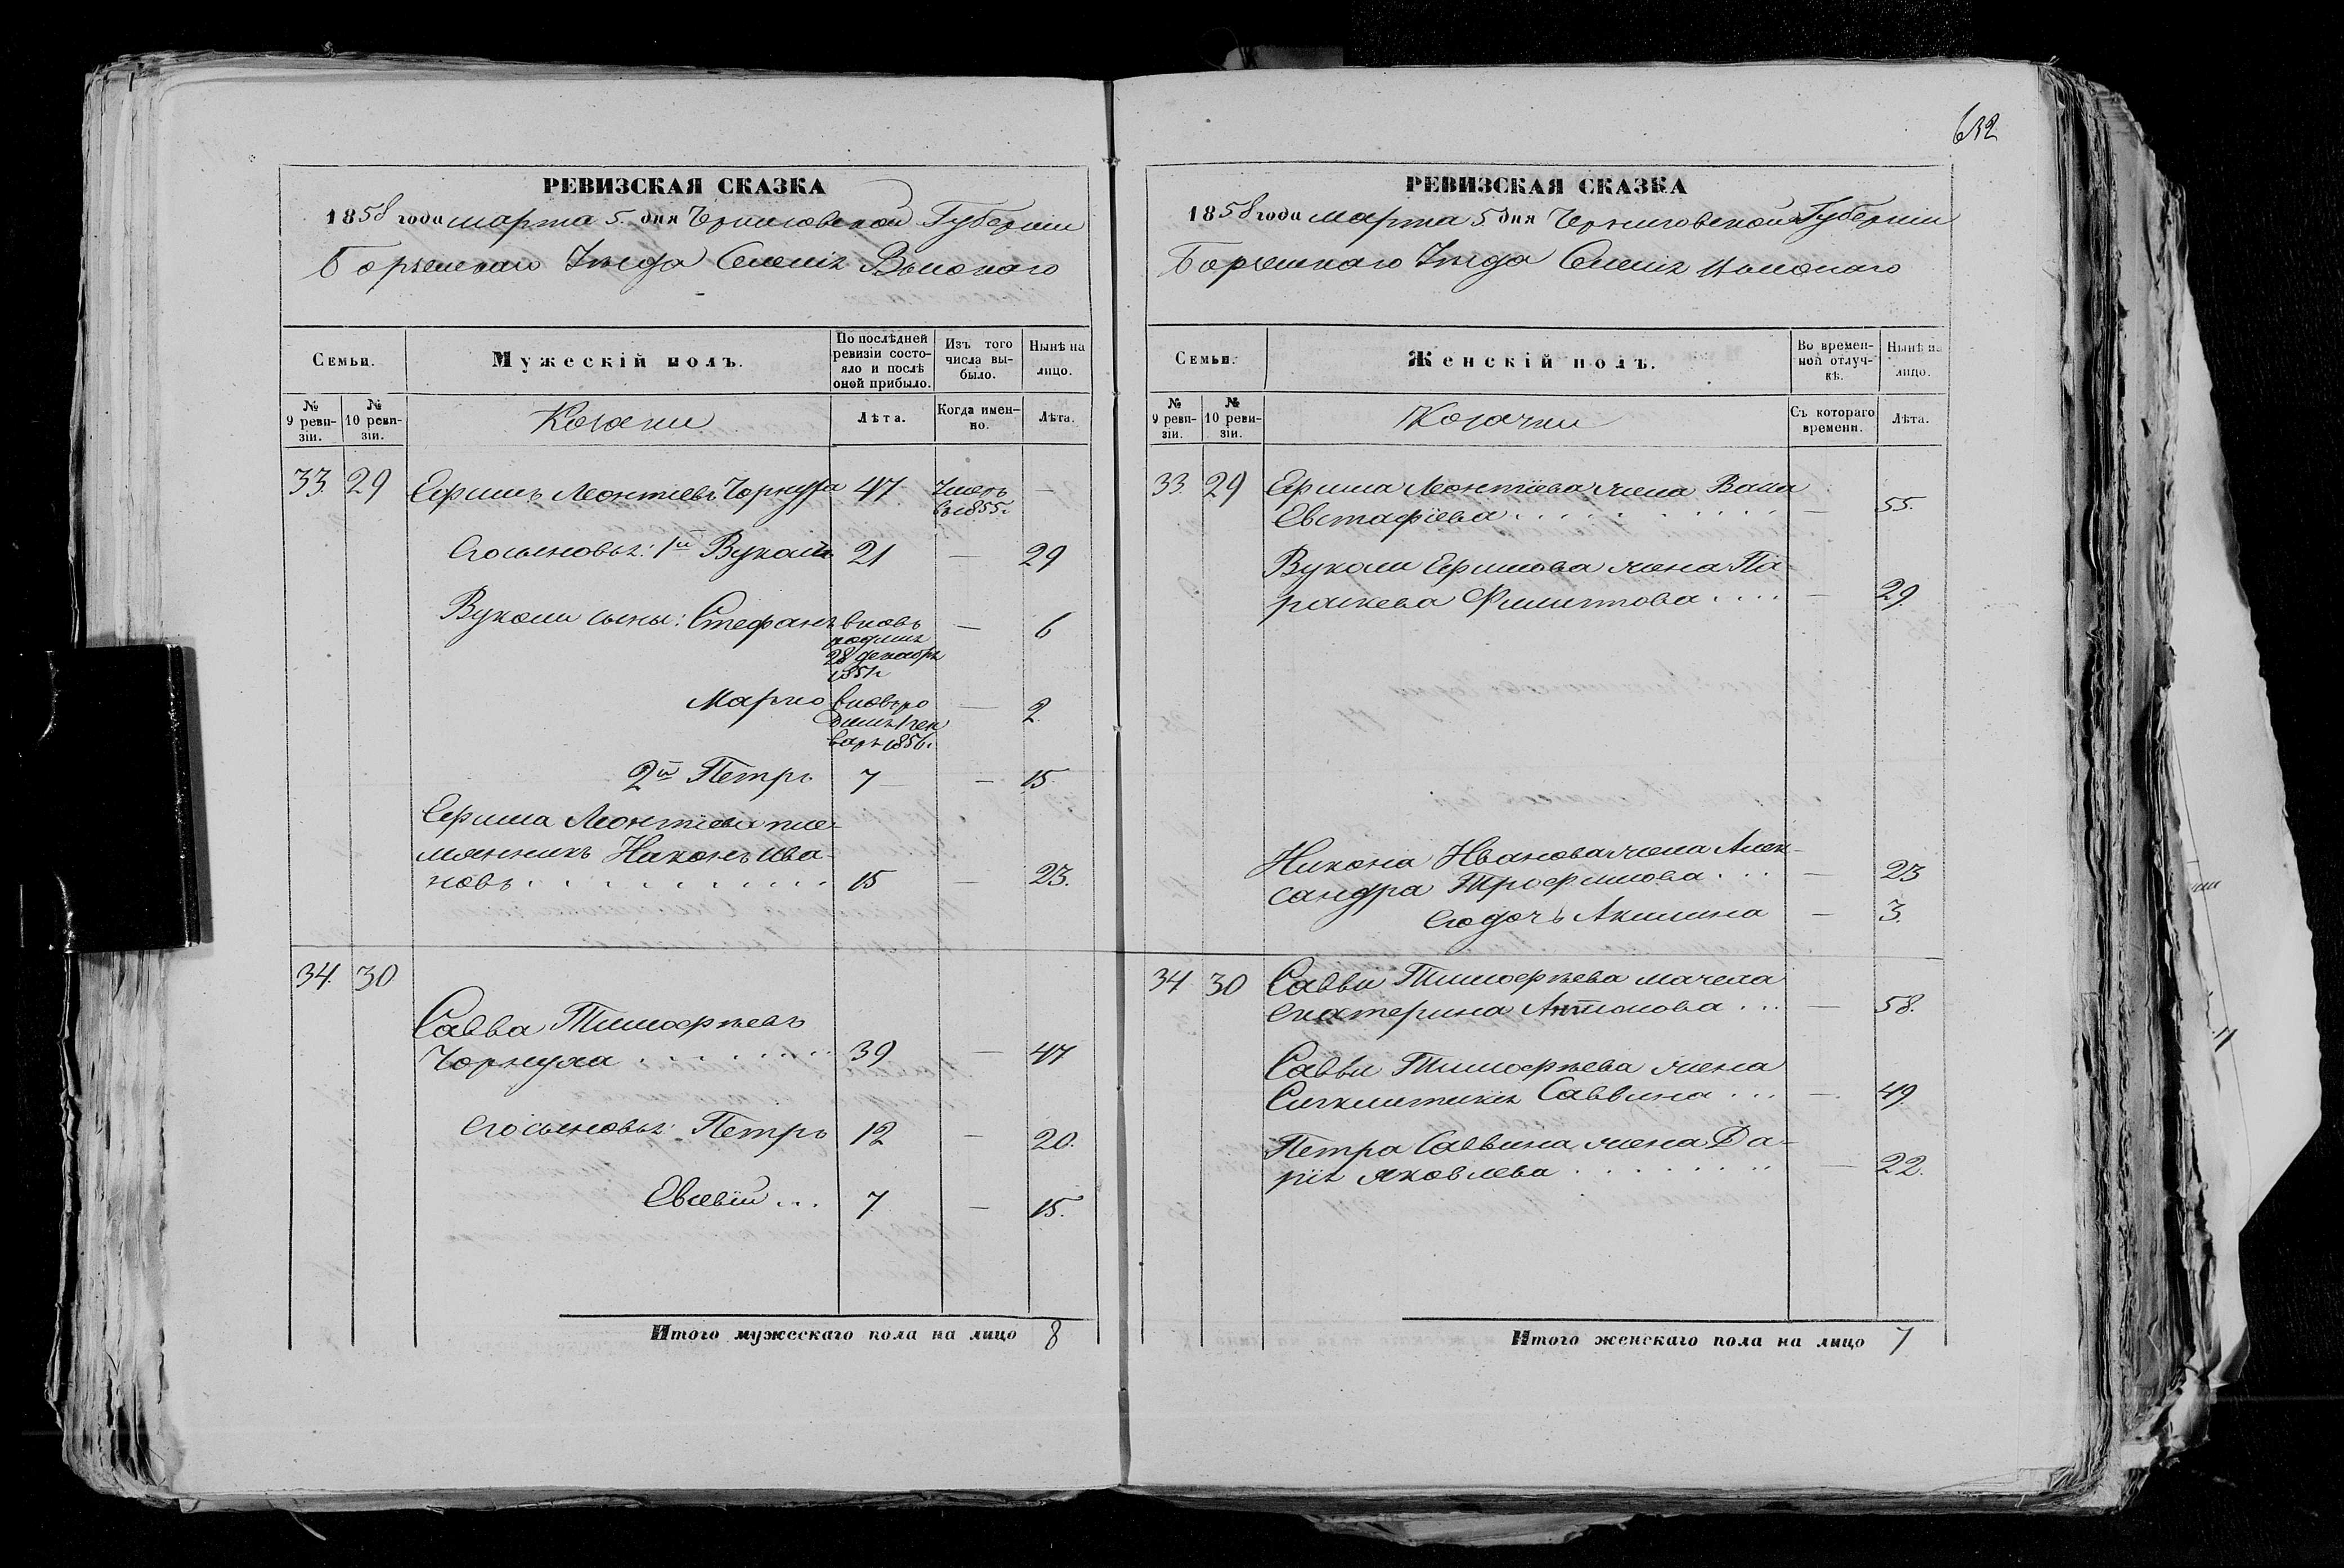 632
РЕВИЗСКАЯ СКАЗКА
1858 года марта 5. дня Черниговской Губерніи
Борзенскаго Уезда Селенія Высокаго
Семьи.
Мужескій полъ.
По послѣдней ревизіи состояло и послѣ оной прибыло.
Изъ того числа выбыло.
Нынѣ на лицо.
№ 9 ревизіи.
№ 10 ревизіи.
Козаки
Лѣта.
Когда именно.
Лѣта.
33. 29 Ефимъ Леонтіевъ Чорнуха 47 Умеръ —
въ 1855 г.
Его сыновья: 1й Вуколъ 21 — 29
Вукола сыны: Стефанъ вновь — 6
родился
28 декабря
1851 г.
Марко вновь ро — 2
дился 1 ген
варя 1856 г.
2й Петръ 7 — 15
Ефима Леонтіева пле-
мянникъ Никонъ Ива-
новъ . . . . . . . . . 15 — 23.
34. 30
Савва Тимофѣевъ
Чорнуха . . . . . . . 39 — 47
Его сыновья: Петръ 12 — 20.
Евсевій ... 7 — 15.
Итого мужескаго пола на лицо 8
РЕВИЗСКАЯ СКАЗКА
1858 года марта 5 дня Черниговской Губерніи
Борзенскаго Уезда Селенія Высокаго
Семьи.
Женскій полъ.
Во временной отлучкѣ.
Нынѣ на лицо.
№ 9 ревизіи.
№ 10 ревизіи.
Козачки
Съ котораго времени.
Лѣта.
33. 29 Ефима Леонтіева жена Васса
Евстафіева . . . . . . . . . — 55.
Вукола Ефимова жена Па
раскева Филиппова . . . . — 29.
Никона Иванова жена Алек-
сандра Трофимова . . . — 23
Его дочь Акилина — 3.
34 30 Саввы Тимофѣева мачеха
Екатерина Антонова . . . — 58.
Саввы Тимофѣева жена
Саввина ... — 49.
Петра Саввина жена Да-
рія Яковлева . . . . . . . — 22.
Итого женскаго пола на лицо 7